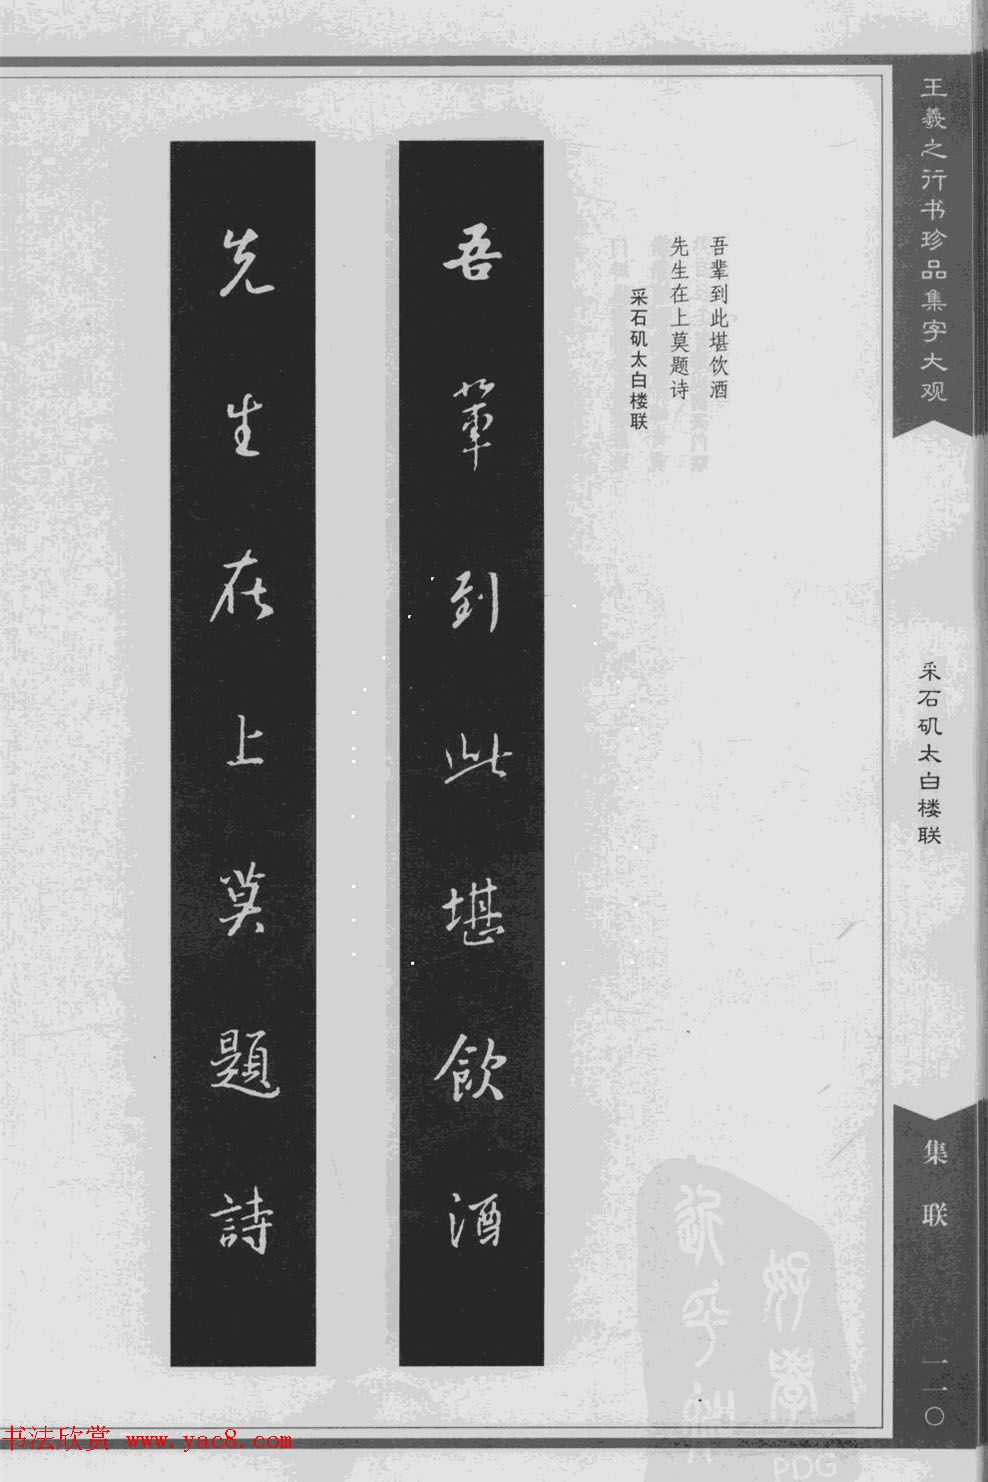 王羲之行书珍品集字大观
采石矶太白楼联
集联
一一〇
吾辈到此堪饮酒
先生在上莫题诗
采石矶太白楼联
吾輩到此堪飲酒
先生在上莫題詩
好學
近乎知
PDG
书法欣赏 www.yac8.com